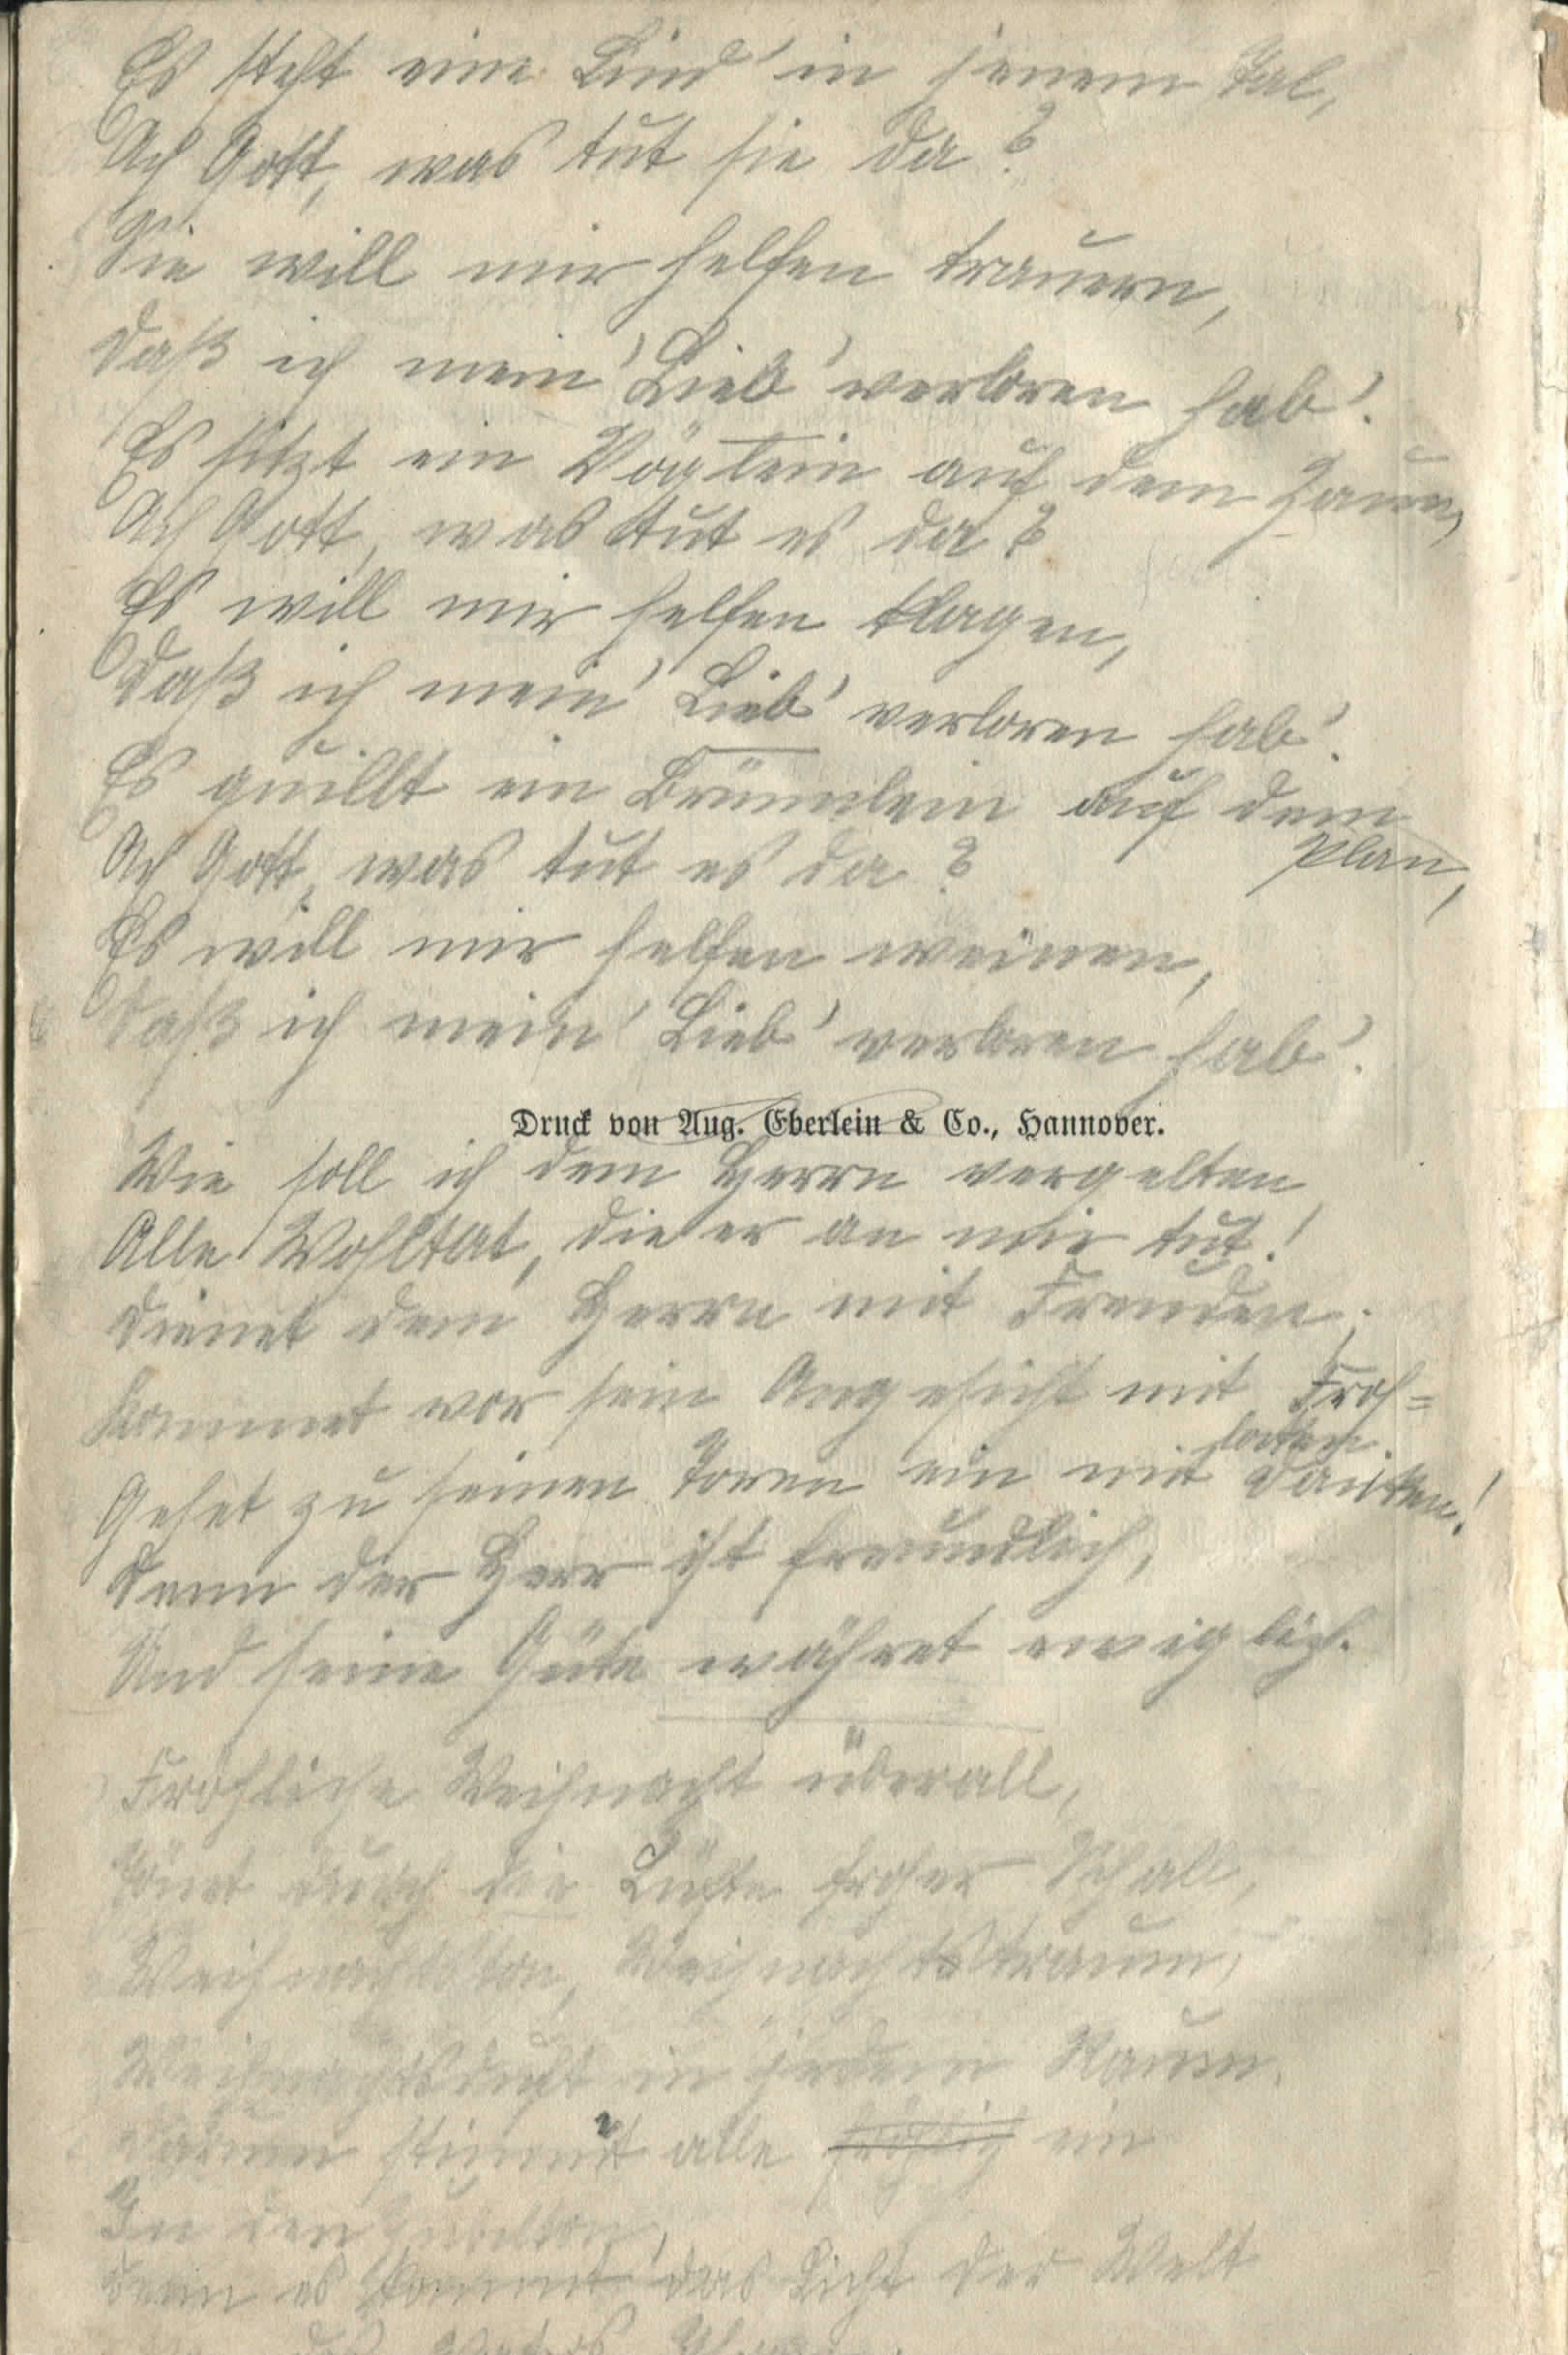 Es steht eine Lind' in jenem Tal,
Ach Gott, was tut sie da?
Sie will mir helfen trauern,
Daß ich mein' Lieb' verloren hab'.
Es sitzt ein Vöglein auf dem Zaun,
Ach Gott, was tut es da?
Es will mir helfen klagen,
Daß ich mein' Lieb' verloren hab'.
Es quillt ein Brünnlein auf dem
Plan,
Ach Gott, was tut es da?
Es will mir helfen weinen,
Daß ich mein' Lieb' verloren hab'.
Druck von Aug. Eberlein & Co., Hannover.
Wie soll ich dem Herrn vergelten
Alle Wohltat, die er an mir tut!
Dienet dem Herrn mit Freuden,
Kommet vor sein Angesicht mit Froh=
locken.
Gehet zu seinen Toren ein mit Danken!
Denn der Herr ist freundlich,
Und seine Güte währet ewiglich.
Fröhliche Weihnacht überall,
Tönet durch die Lüfte froher Schall,
Weihnachtston, Weihnachtstraum,
Weihnachtsduft in jedem Raum.
Darum stimmt alle fröhlich ein
In den Jubelton,
Denn es kommt das Licht der Welt
des Vaters